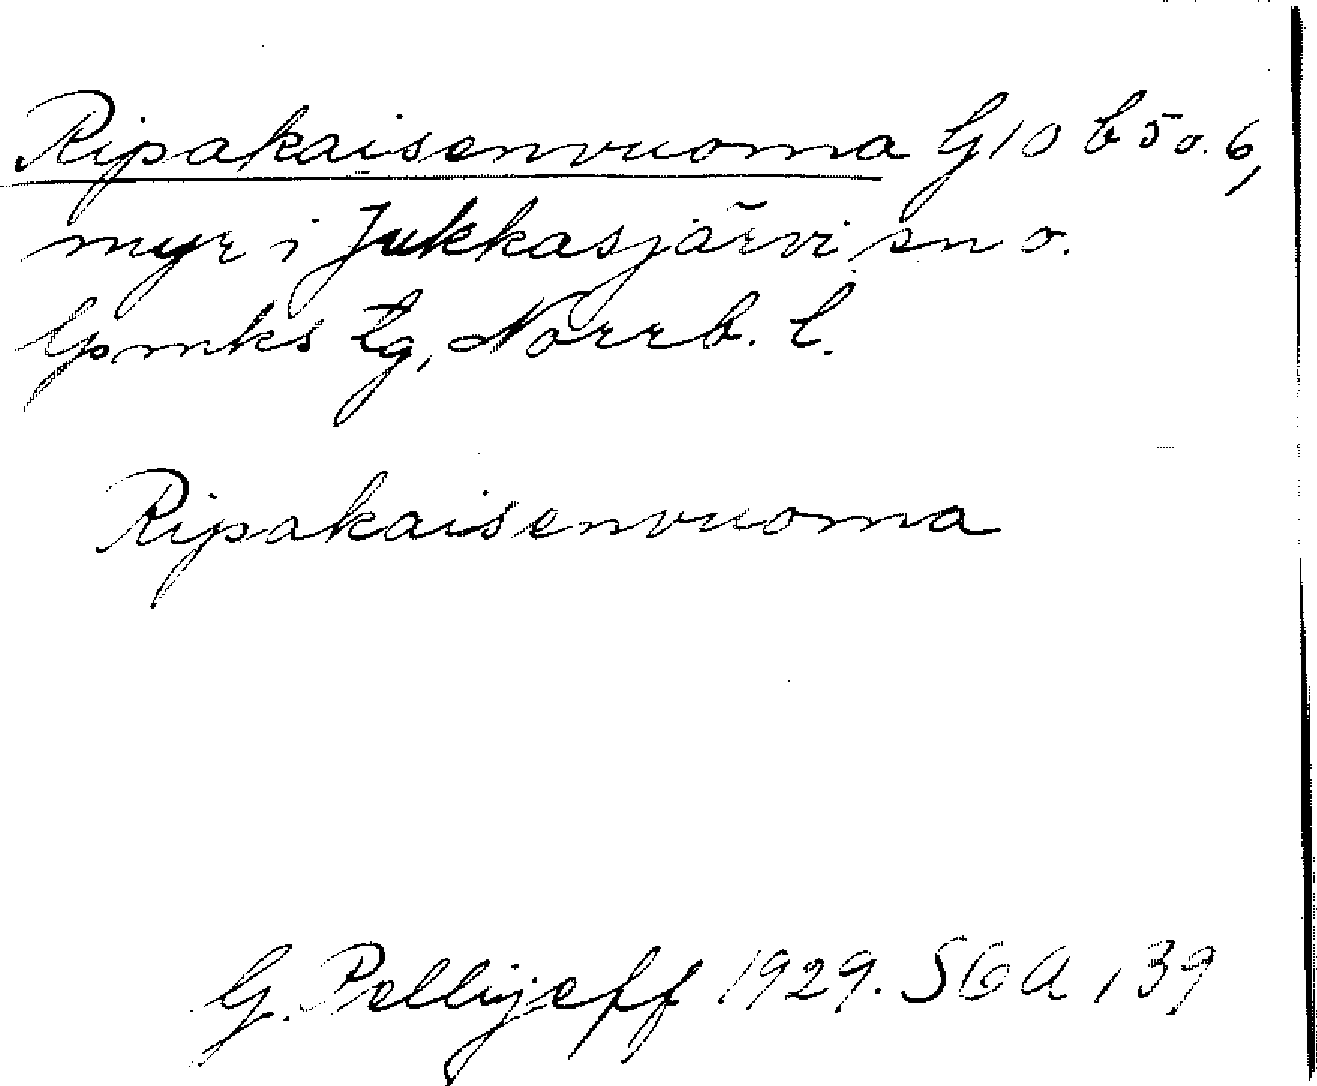 Ripakaisenvuoma G10 b 5 o. 6,
myr i Jukkasjärvi sn o.
lpmks tg, Norrb. l.
Ripakaisenvuoma
G. Pellijeff 1929. SGA, 39